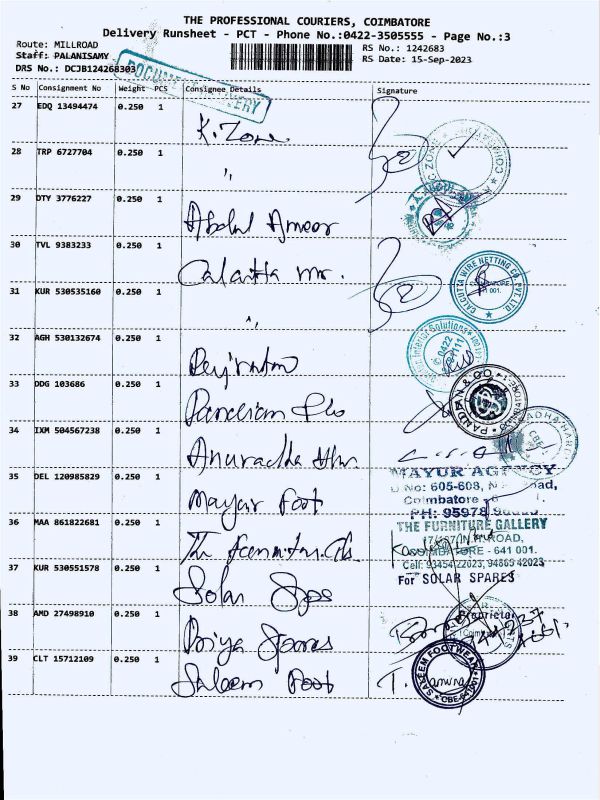 THE PROFESSIONAL COURIERS, COIMBATORE
Delivery Runsheet - PCT - Phone No.:0422-3505555 - Page No.:3
Route: MILLROAD
RS No.: 1242683
Staff: PALANISAMY
RS Date: 15-Sep-2023
DRS No.: DCJB124268303
S No Consignment No Weight PCS Consignee Details Signature
27 EDQ 13494474 0.250 1 K. Zone
28 TRP 6727704 0.250 1 "
29 DTY 3776227 0.250 1 Abdul Ameer
30 TVL 9383233 0.250 1 Calcutta
31 KUR 530535160 0.250 1 "
CALCUTTA WIRE NETTING CO. PVT LTD
32 AGH 530132674 0.250 1
Interior Solutions
33 DDG 103686 0.250 1 Pandian
PANDIAN & CO
34 IXM 504567238 0.250 1 Anuradha
35 DEL 120985829 0.250 1 Mayur Foot
MAYUR AGENCY
No: 605-608,
Coimbatore
PH: 95978
36 MAA 861822681 0.250 1 The
THE FURNITURE GALLERY
ROAD,
COIMBATORE - 641 001.
Cell: 93454 22023, 94869 42023
37 KUR 530551578 0.250 1 Solar Sps
For SOLAR SPARES
Proprietor
38 AMD 27498910 0.250 1 Priya Spares
39 CLT 15712109 0.250 1 Saleem Foot
SALEEM FOOTWEAR